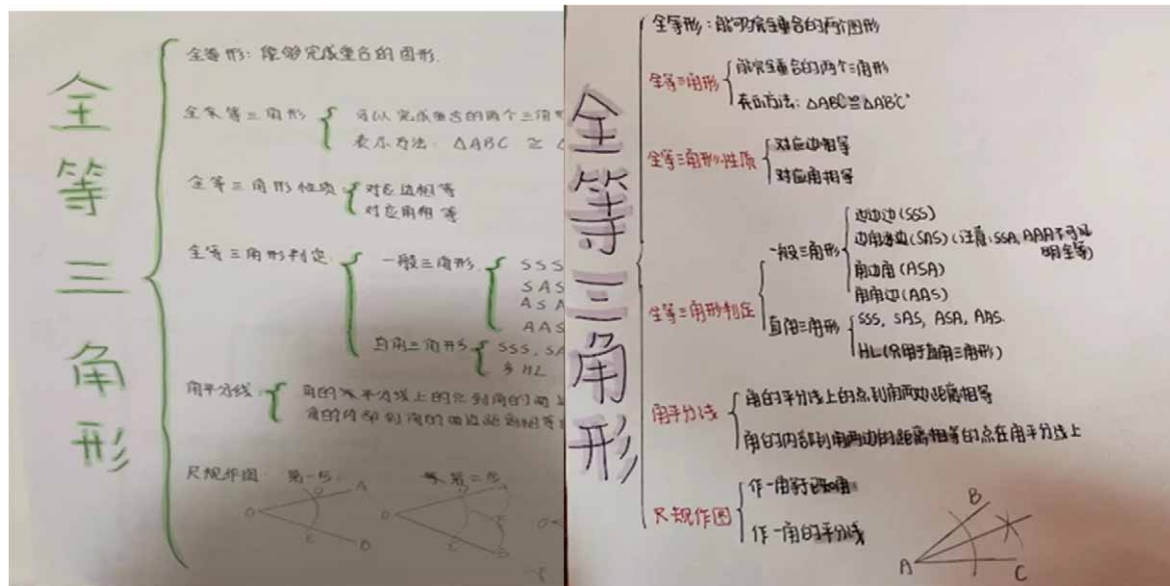 全等三角形
全等形：能够完成重合的图形.
全等三角形
可以完成重合的两个三角形
表示方法：△ABC ≅ △
全等三角形性质
对应边相等
对应角相等
全等三角形判定：
一般三角形
SSS
SAS
ASA
AAS
直角三角形
SSS, SA
HL
角平分线：
角的平分线上的点到角的两边
角的内部到角的两边距离相等
尺规作图：
第一步：
第二步
A
O
D
E
B
A
O
D
E
B
全等三角形
全等形：能够完全重合的两个图形
全等三角形
能完全重合的两个三角形
表示方法：△ABC≌△A'B'C'
全等三角形性质
对应边相等
对应角相等
全等三角形判定
一般三角形
边边边(SSS)
边角边(SAS)(注意：SSA, AAA不可证
明全等)
角边角(ASA)
角角边(AAS)
直角三角形
SSS, SAS, ASA, AAS.
HL(只用于直角三角形)
角平分线
角的平分线上的点到角两边距离相等
角的内部到角两边的距离相等的点在角平分线上
尺规作图
作一角等于已知角
作一角的平分线
B
A
C